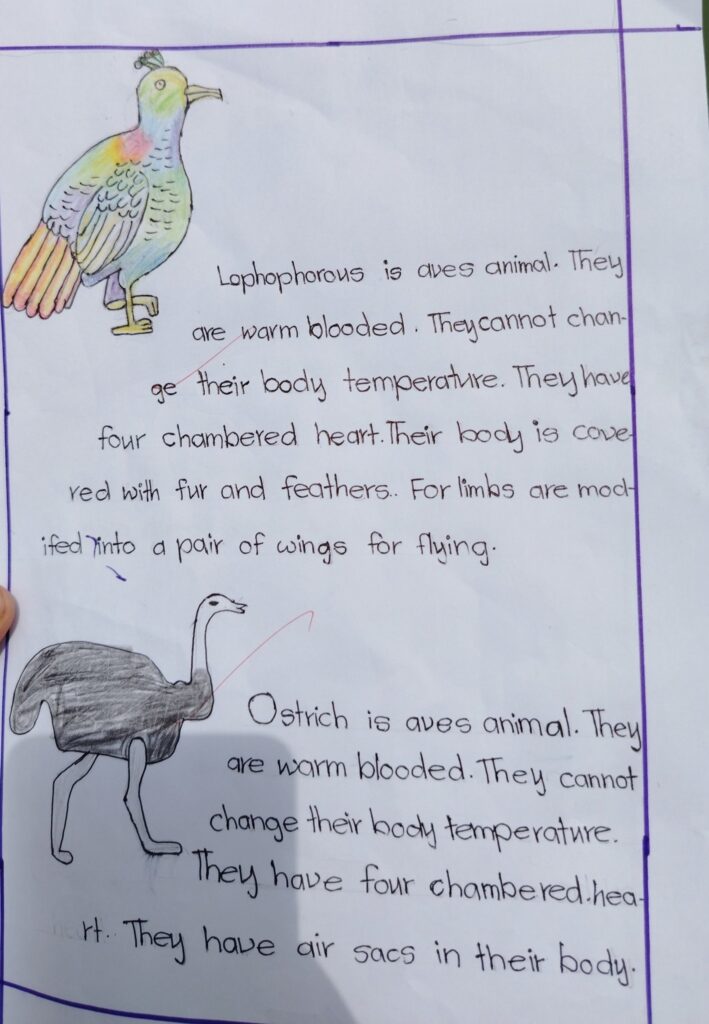 Lophophorous is aves animal. They
are warm blooded. They cannot chan-
ge their body temperature. They have
four chambered heart. Their body is cove-
red with fur and feathers.. For limbs are mod-
ifed into a pair of wings for flying.
Ostrich is aves animal. They
are warm blooded. They cannot
change their body temperature.
They have four chambered.hea-
rt. They have air sacs in their body.